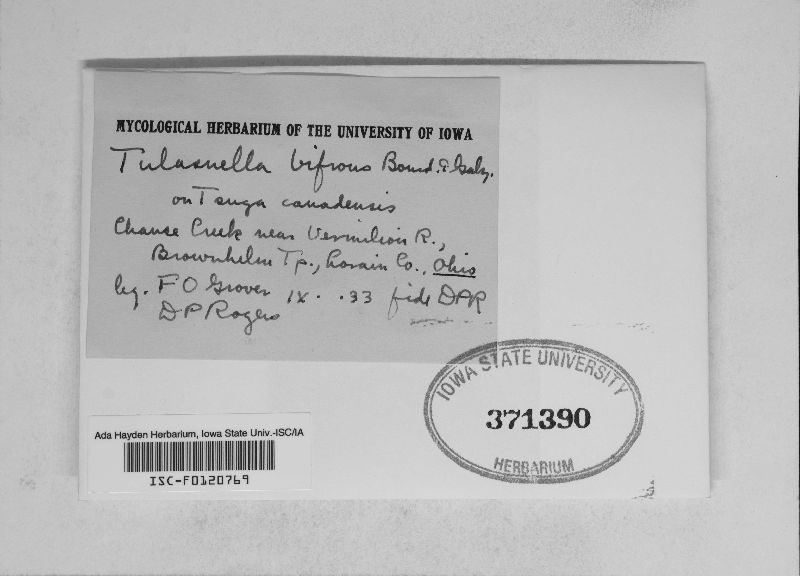 MYCOLOGICAL HERBARIUM OF THE UNIVERSITY OF IOWA
Tulasnella bifrons Bourd. & Galz.
on Tsuga canadensis
Chance Creek near Vermilion R.,
Brownhelm Tp., Lorain Co., Ohio
leg. F O Grover IX. .33 fide DPR
D P Rogers
IOWA STATE UNIVERSITY
371390
HERBARIUM
Ada Hayden Herbarium, Iowa State Univ.-ISC/IA
ISC-F0120769